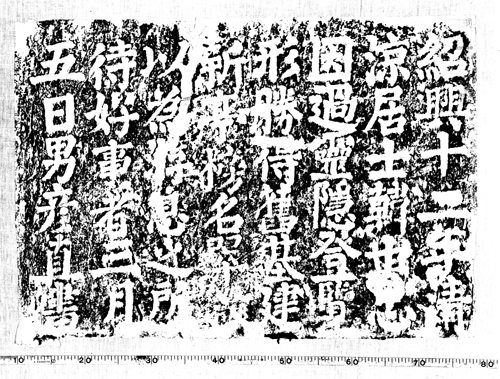 紹興十二年清
涼居士韓世忠
因過靈隱登覽
形勝得舊基建
新亭榜名
以為游息之所
待好事者三月
五日男彥直書
10 20 30 40 50 60 70 80